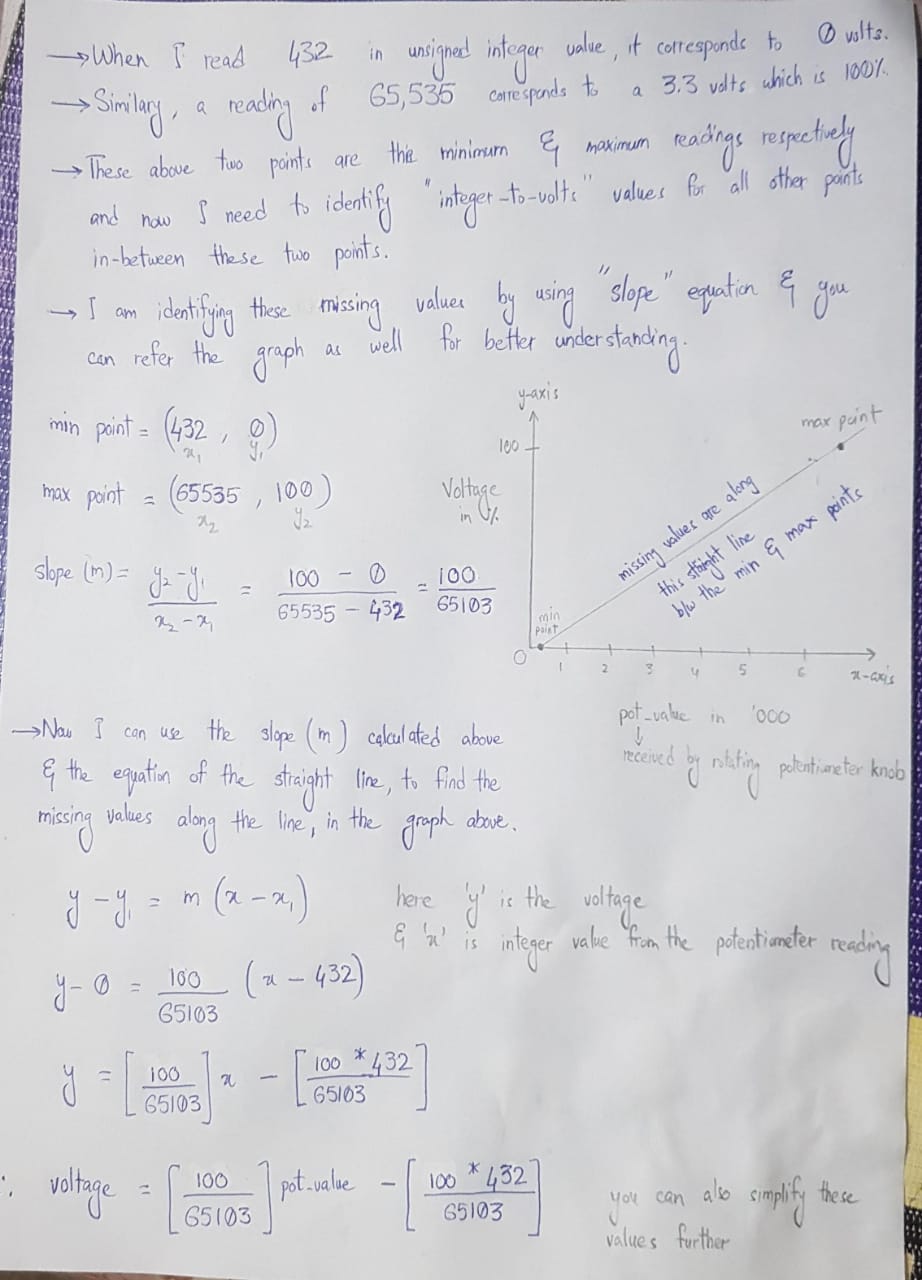 → When I read 432 in unsigned integer value, it corresponds to 0 volts.
→ Similary, a reading of 65,535 corresponds to a 3.3 volts which is 100%.
→ These above two points are the minimum & maximum readings respectively
and now I need to identify "integer-to-volts" values for all other points
in-between these two points.
→ I am identifying these missing values by using "slope" equation & you
can refer the graph as well for better understanding.
min point = (432 , 0)
x₁ y₁
max point = (65535 , 100)
x₂ y₂
slope (m) = (y₂ - y₁)/(x₂ - x₁) = (100 - 0)/(65535 - 432) = 100/65103
y-axis
100
Voltage
in %
max point
missing values are along
this straight line
b/w the min & max points
min
point
0 1 2 3 4 5 6 x-axis
pot_value in '000
↓
received by rotating potentiometer knob
→ Now I can use the slope (m) calculated above
& the equation of the straight line, to find the
missing values along the line, in the graph above.
y - y₁ = m (x - x₁)
here 'y' is the voltage
& 'x' is integer value from the potentiometer reading
y - 0 = 100/65103 (x - 432)
y = [100/65103] x - [100 * 432/65103]
∴ voltage = [100/65103] pot-value - [100 * 432/65103]
you can also simplify these
values further